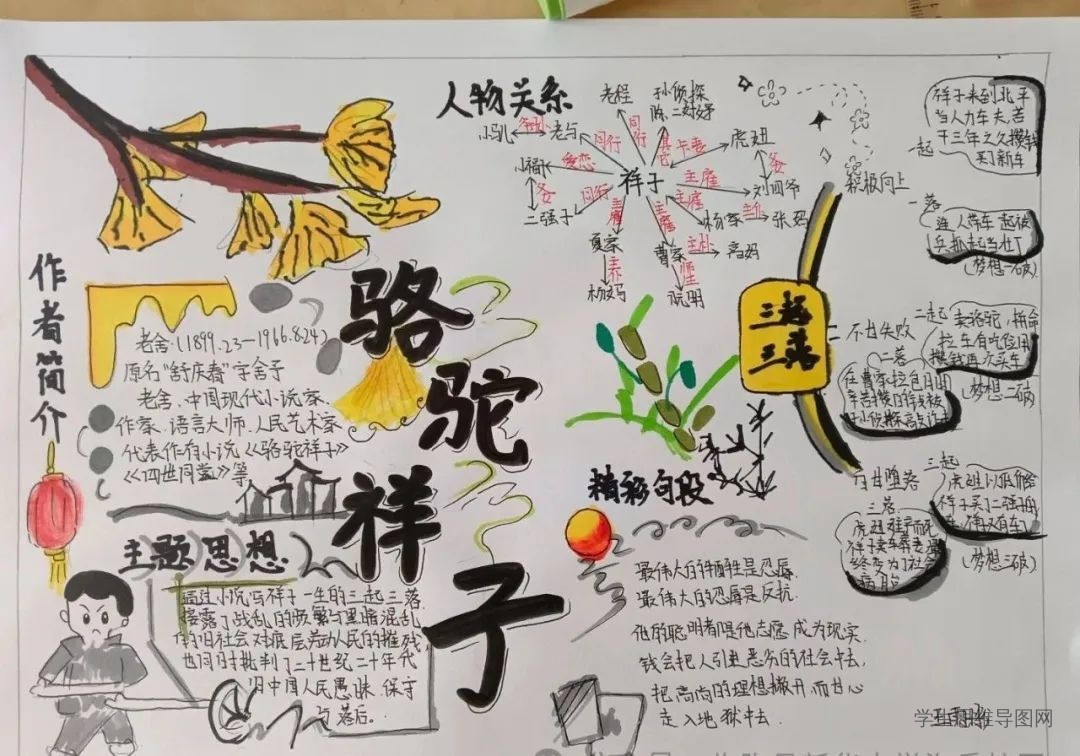 人物关系
老程
孙侦探
小马儿
祖孙
老马
同行
同行
虎妞
小福子
爱恋
祥子
主雇
刘四爷
父女
父女
二强子
同行
主雇
杨家
主仆
张妈
夏家
主雇
曹家
主仆
高妈
杨妈
阮明
积极向上
一起
祥子来到北平
当人力车夫,苦
干三年之久攒钱
买了新车
一落
连人带车一起被
兵抓起当壮丁
(梦想一破)
三起
三落
不甘失败
二起
卖骆驼,拼命
拉车,省吃俭用
攒钱再次买车
二落
(梦想二破)
自甘堕落
三起
虎妞以低价给
祥子买了二强子
(梦想三破)
三落
虎妞难产而死
骆驼祥子
作者简介
老舍(1899.2.3—1966.8.24)
原名“舒庆春”字舍予
老舍、中国现代小说家
作家、语言大师、人民艺术家
代表作有小说《骆驼祥子》
《四世同堂》等
主题思想
通过小说写祥子一生的三起三落
揭露了战乱的频繁与黑暗混乱
的旧社会对底层劳动人民的摧残,
也同时批判了二十世纪二十年代
旧中国人民愚昧、保守
与落后。
精彩句段
最伟大的牺牲是忍辱
最伟大的忍辱是反抗.
他的聪明者得他志愿成为现实.
钱会把人引进恶劣的社会中去,
把高尚的理想撇开,而甘心
走入地狱中去